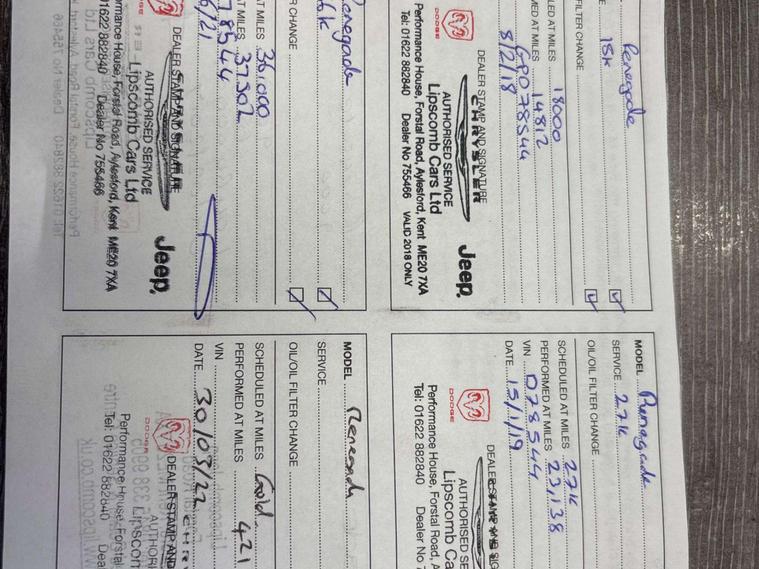 Renegade
15K
FILTER CHANGE
18000
14812
GP078544
8/2/18
DEALER STAMP AND SIGNATURE
CHRYSLER
Jeep
DODGE
AUTHORISED SERVICE
Lipscomb Cars Ltd
Performance House, Forstal Road, Aylesford, Kent ME20 7XA
Tel: 01622 882840 Dealer No 755466 VALID 2018 ONLY
MODEL Renegade
SERVICE 27K
OIL/OIL FILTER CHANGE
SCHEDULED AT MILES 27K
PERFORMED AT MILES 23,138
VIN D78544
DATE 15/1/19
DODGE
AUTHORISED SE
Lipscomb Ca
Performance House, Forstal Road, A
Tel: 01622 882840 Dealer No
Renegade
R CHANGE
AT MILES 36,000
AT MILES 37,302
78544
DEALER STAMP AND SIGNATURE
Jeep
AUTHORISED SERVICE
Lipscomb Cars Ltd
Performance House, Forstal Road, Aylesford, Kent ME20 7XA
01622 882840 Dealer No 755466
MODEL
SERVICE
OIL/OIL FILTER CHANGE
SCHEDULED AT MILES Gold
PERFORMED AT MILES 421
VIN
DATE 30/03/22
DEALER STAMP AND
DODGE
AUTHORI
Lipscom
Performance House, Forstal
Tel: 01622 882840 Dea